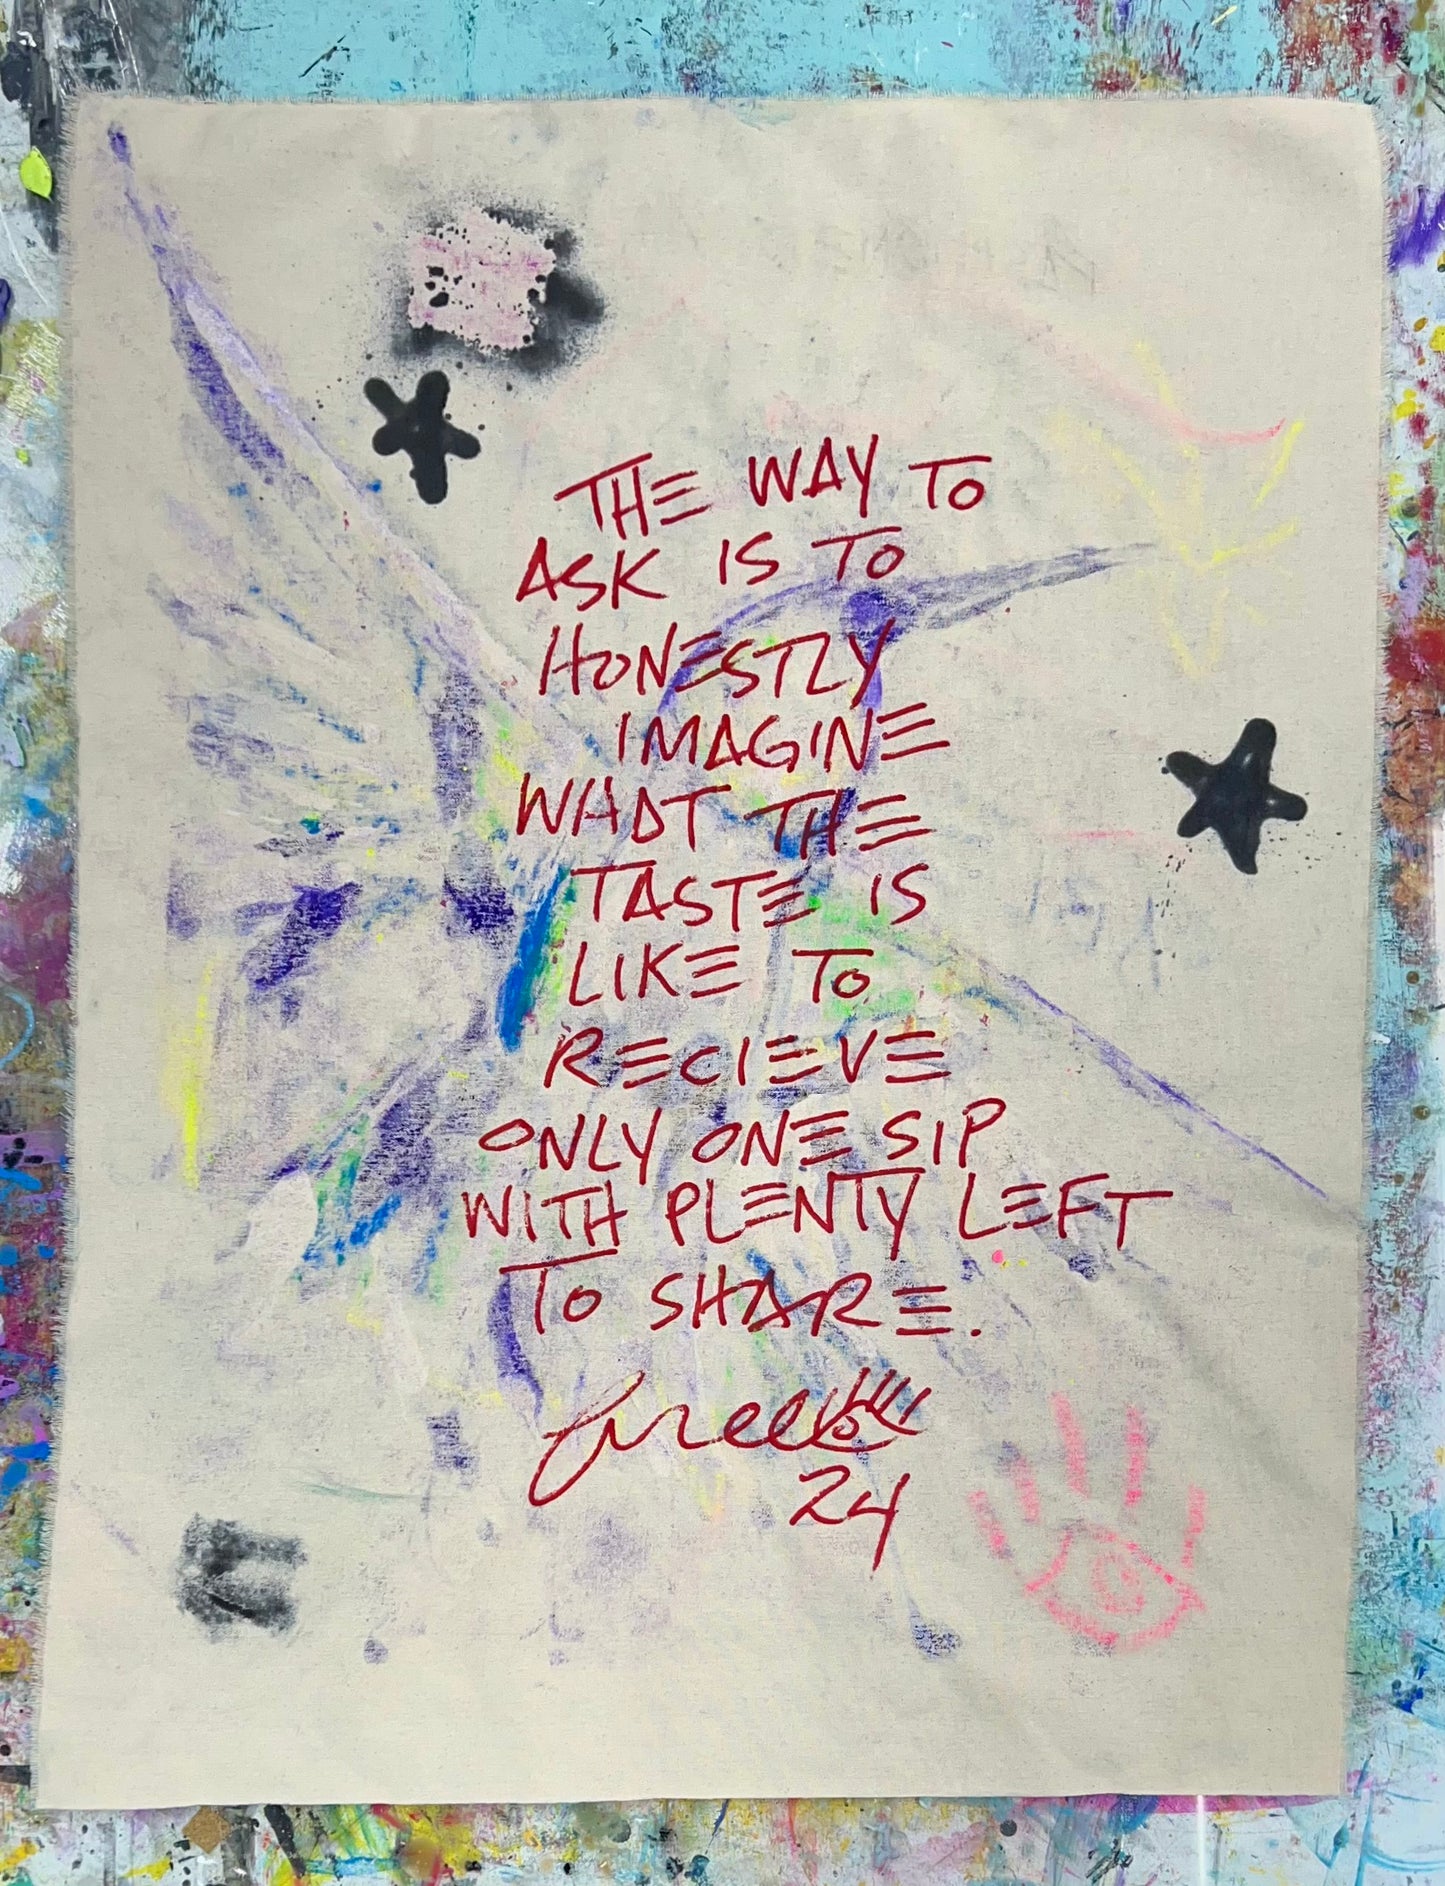 THE WAY TO
ASK IS TO
HONESTLY
IMAGINE
WHAT THE
TASTE IS
LIKE TO
RECIEVE
ONLY ONE SIP
WITH PLENTY LEFT
TO SHARE.
24